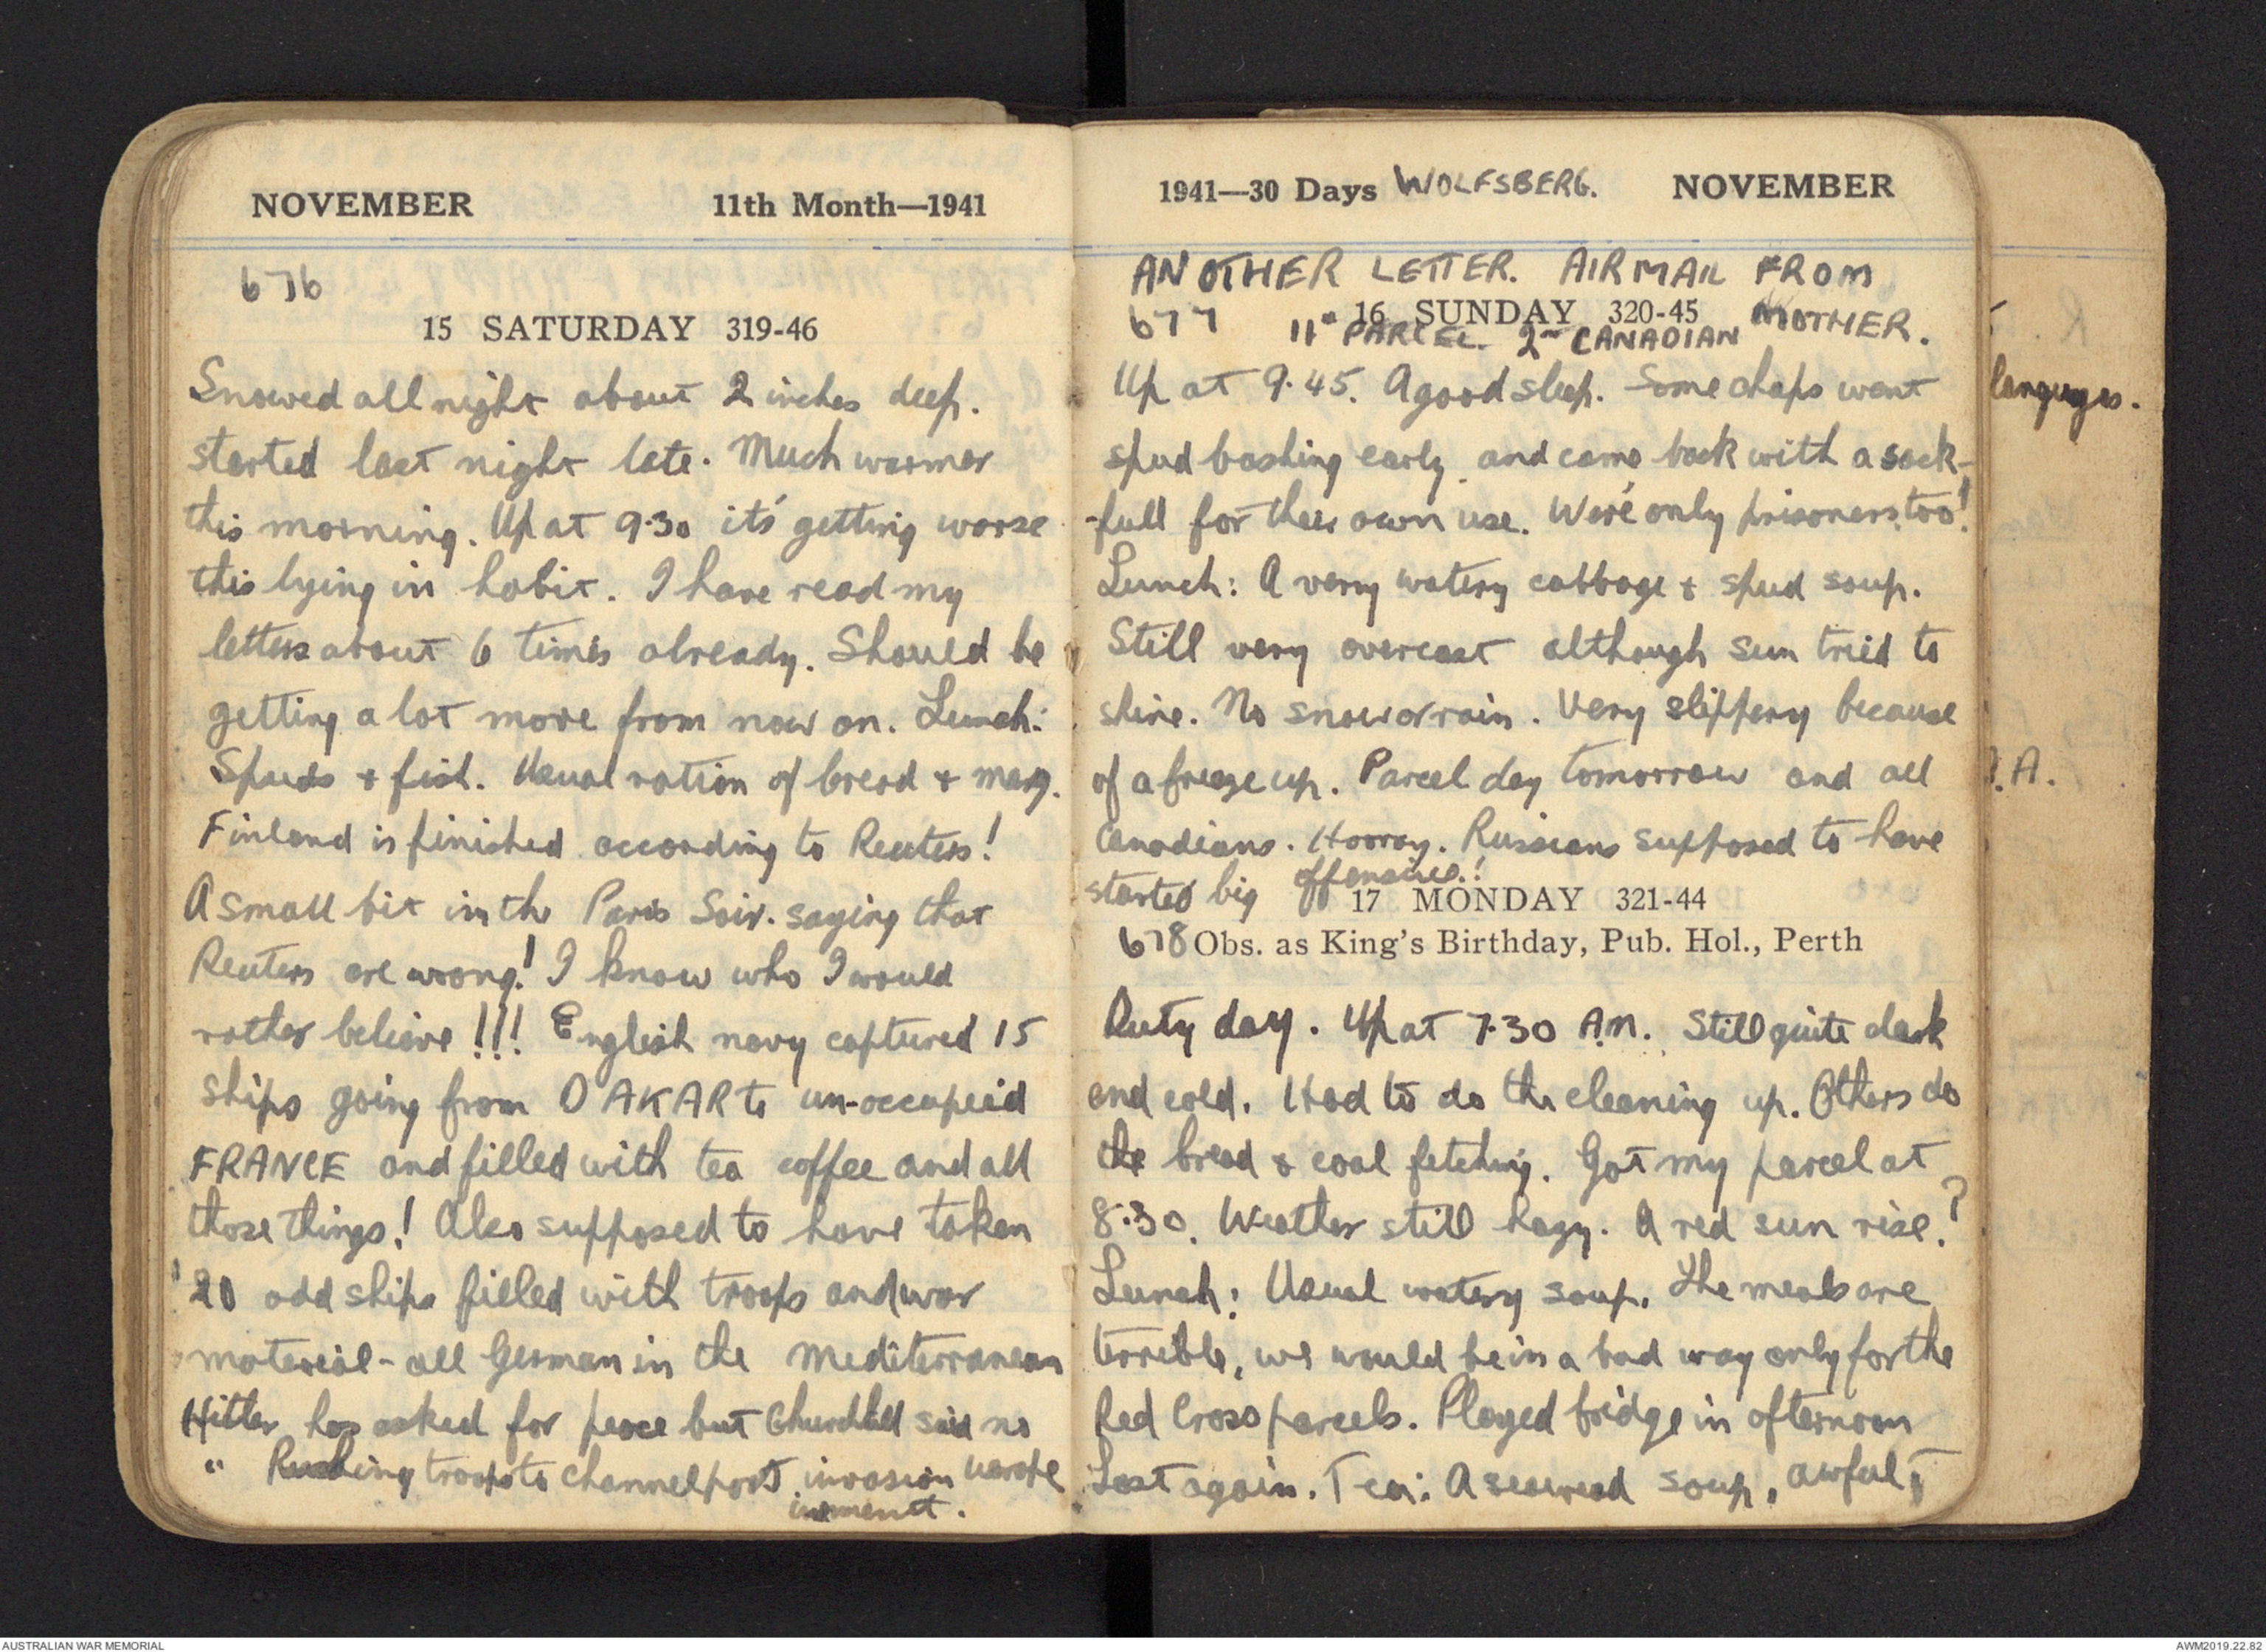 NOVEMBER 11th Month—1941
676
15 SATURDAY 319-46
Snowed all night about 2 inches deep.
started last night late. Much warmer
this morning. Up at 9.30 it's getting worse
this lying in habit. I have read my
letters about 6 times already. Should be
getting a lot more from now on. Lunch:
Spuds & fish. Usual ration of bread & marg.
Finland is finished according to Reuters!
A small bit in the Paris Soir. saying that
Reuters are wrong! I know who I would
rather believe!!! English navy captured 15
ships going from DAKAR to un-occupied
FRANCE and filled with tea coffee and all
those things! Also supposed to have taken
20 odd ships filled with troops and war
material - all German in the Mediterranean
Hitler has asked for peace but Churchill said no
" Rushing troops to channel ports invasion
1941—30 Days WOLFSBERG. NOVEMBER
ANOTHER LETTER. AIRMAIL FROM
MOTHER.
677 16 SUNDAY 320-45
11th PARCEL. 2nd CANADIAN
Up at 9.45. A good sleep. Some chaps went
spud bashing early and came back with a sack-
-full for their own use. We're only prisoners too!
Lunch: A very watery cabbage & spud soup.
Still very overcast although sun tried to
shine. No snow or rain. Very slippery because
of a freeze up. Parcel day tomorrow and all
Canadians. Hooray. Russians supposed to have
started big offensive!
17 MONDAY 321-44
678 Obs. as King's Birthday, Pub. Hol., Perth
Duty day. Up at 7.30 A.M. Still quite dark
and cold. Had to do the cleaning up. Others do
the bread & coal fetching. Got my parcel at
8.30. Weather still hazy. A red sun rise?
Lunch: Usual watery soup. The meals are
terrible, we would be in a bad way only for the
Red Cross parcels. Played bridge in afternoon
Lost again. Tea: A seaweed soup, awful
languages.
.A.
AUSTRALIAN WAR MEMORIAL
AWM2019.22.82